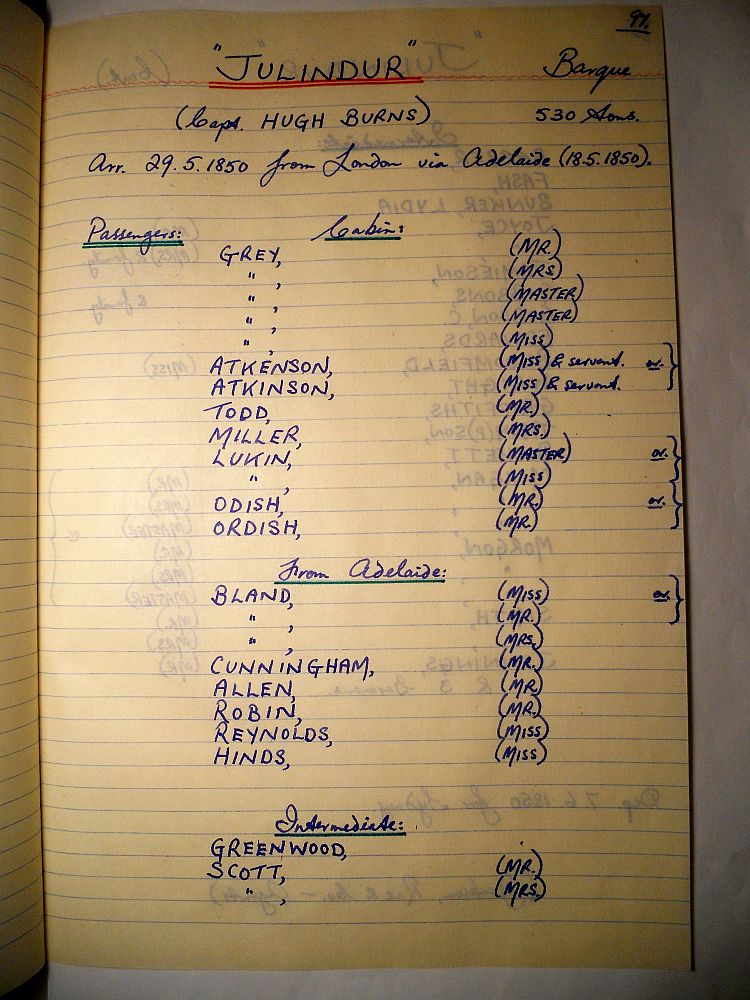 97.
"JULINDUR" Barque
(Capt. HUGH BURNS) 530 tons.
Arr. 29.5.1850 from London via Adelaide (18.5.1850).
Passengers: Cabin:
GREY, (MR.)
" , (MRS)
" , (MASTER)
" , (MASTER)
" , (MISS)
ATKENSON, (MISS) & servant. or. }
ATKINSON, (MISS) & servant.
TODD, (MR.)
MILLER, (MRS.)
LUKIN, (MASTER) or. }
" , (MISS)
ODISH, (MR.) or. }
ORDISH, (MR.)
From Adelaide:
BLAND, (MISS) or. }
" , (MR.)
" , (MRS.)
CUNNINGHAM, (MR.)
ALLEN, (MR.)
ROBIN, (MR.)
REYNOLDS, (MISS)
HINDS, (MISS)
Intermediate:
GREENWOOD,
SCOTT, (MR.)
" , (MRS.)